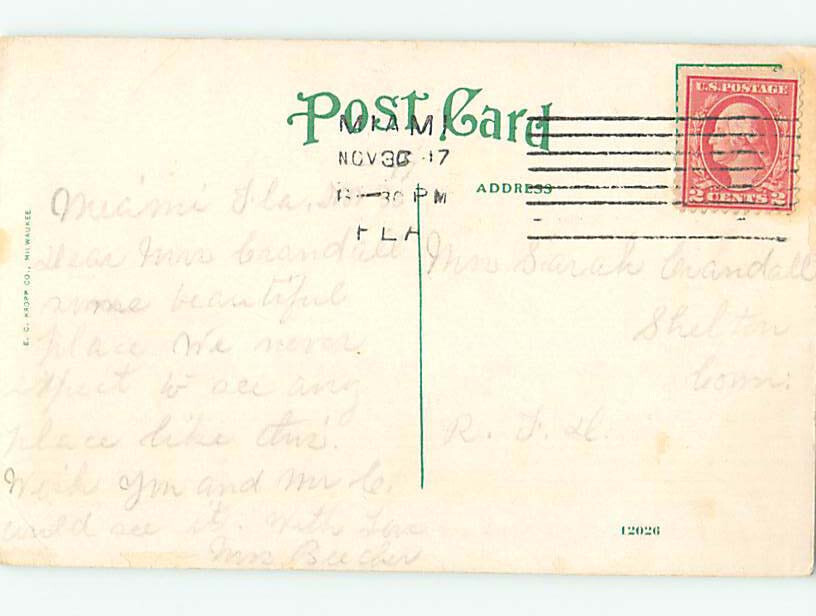 Post Card
MIAMI
NOV 30 17
30 PM
FLA
ADDRESS
U.S. POSTAGE
2 CENTS 2
Miami Fla.
Dear Mrs Crandall
some beautiful
place We never
expect to see any
place like this.
Wish You and Mr C.
could see it. With Love
Mrs Beecher
Mrs Sarah Crandall
Shelton
Conn.
R. F. D.
E. C. KROPP CO., MILWAUKEE
12026